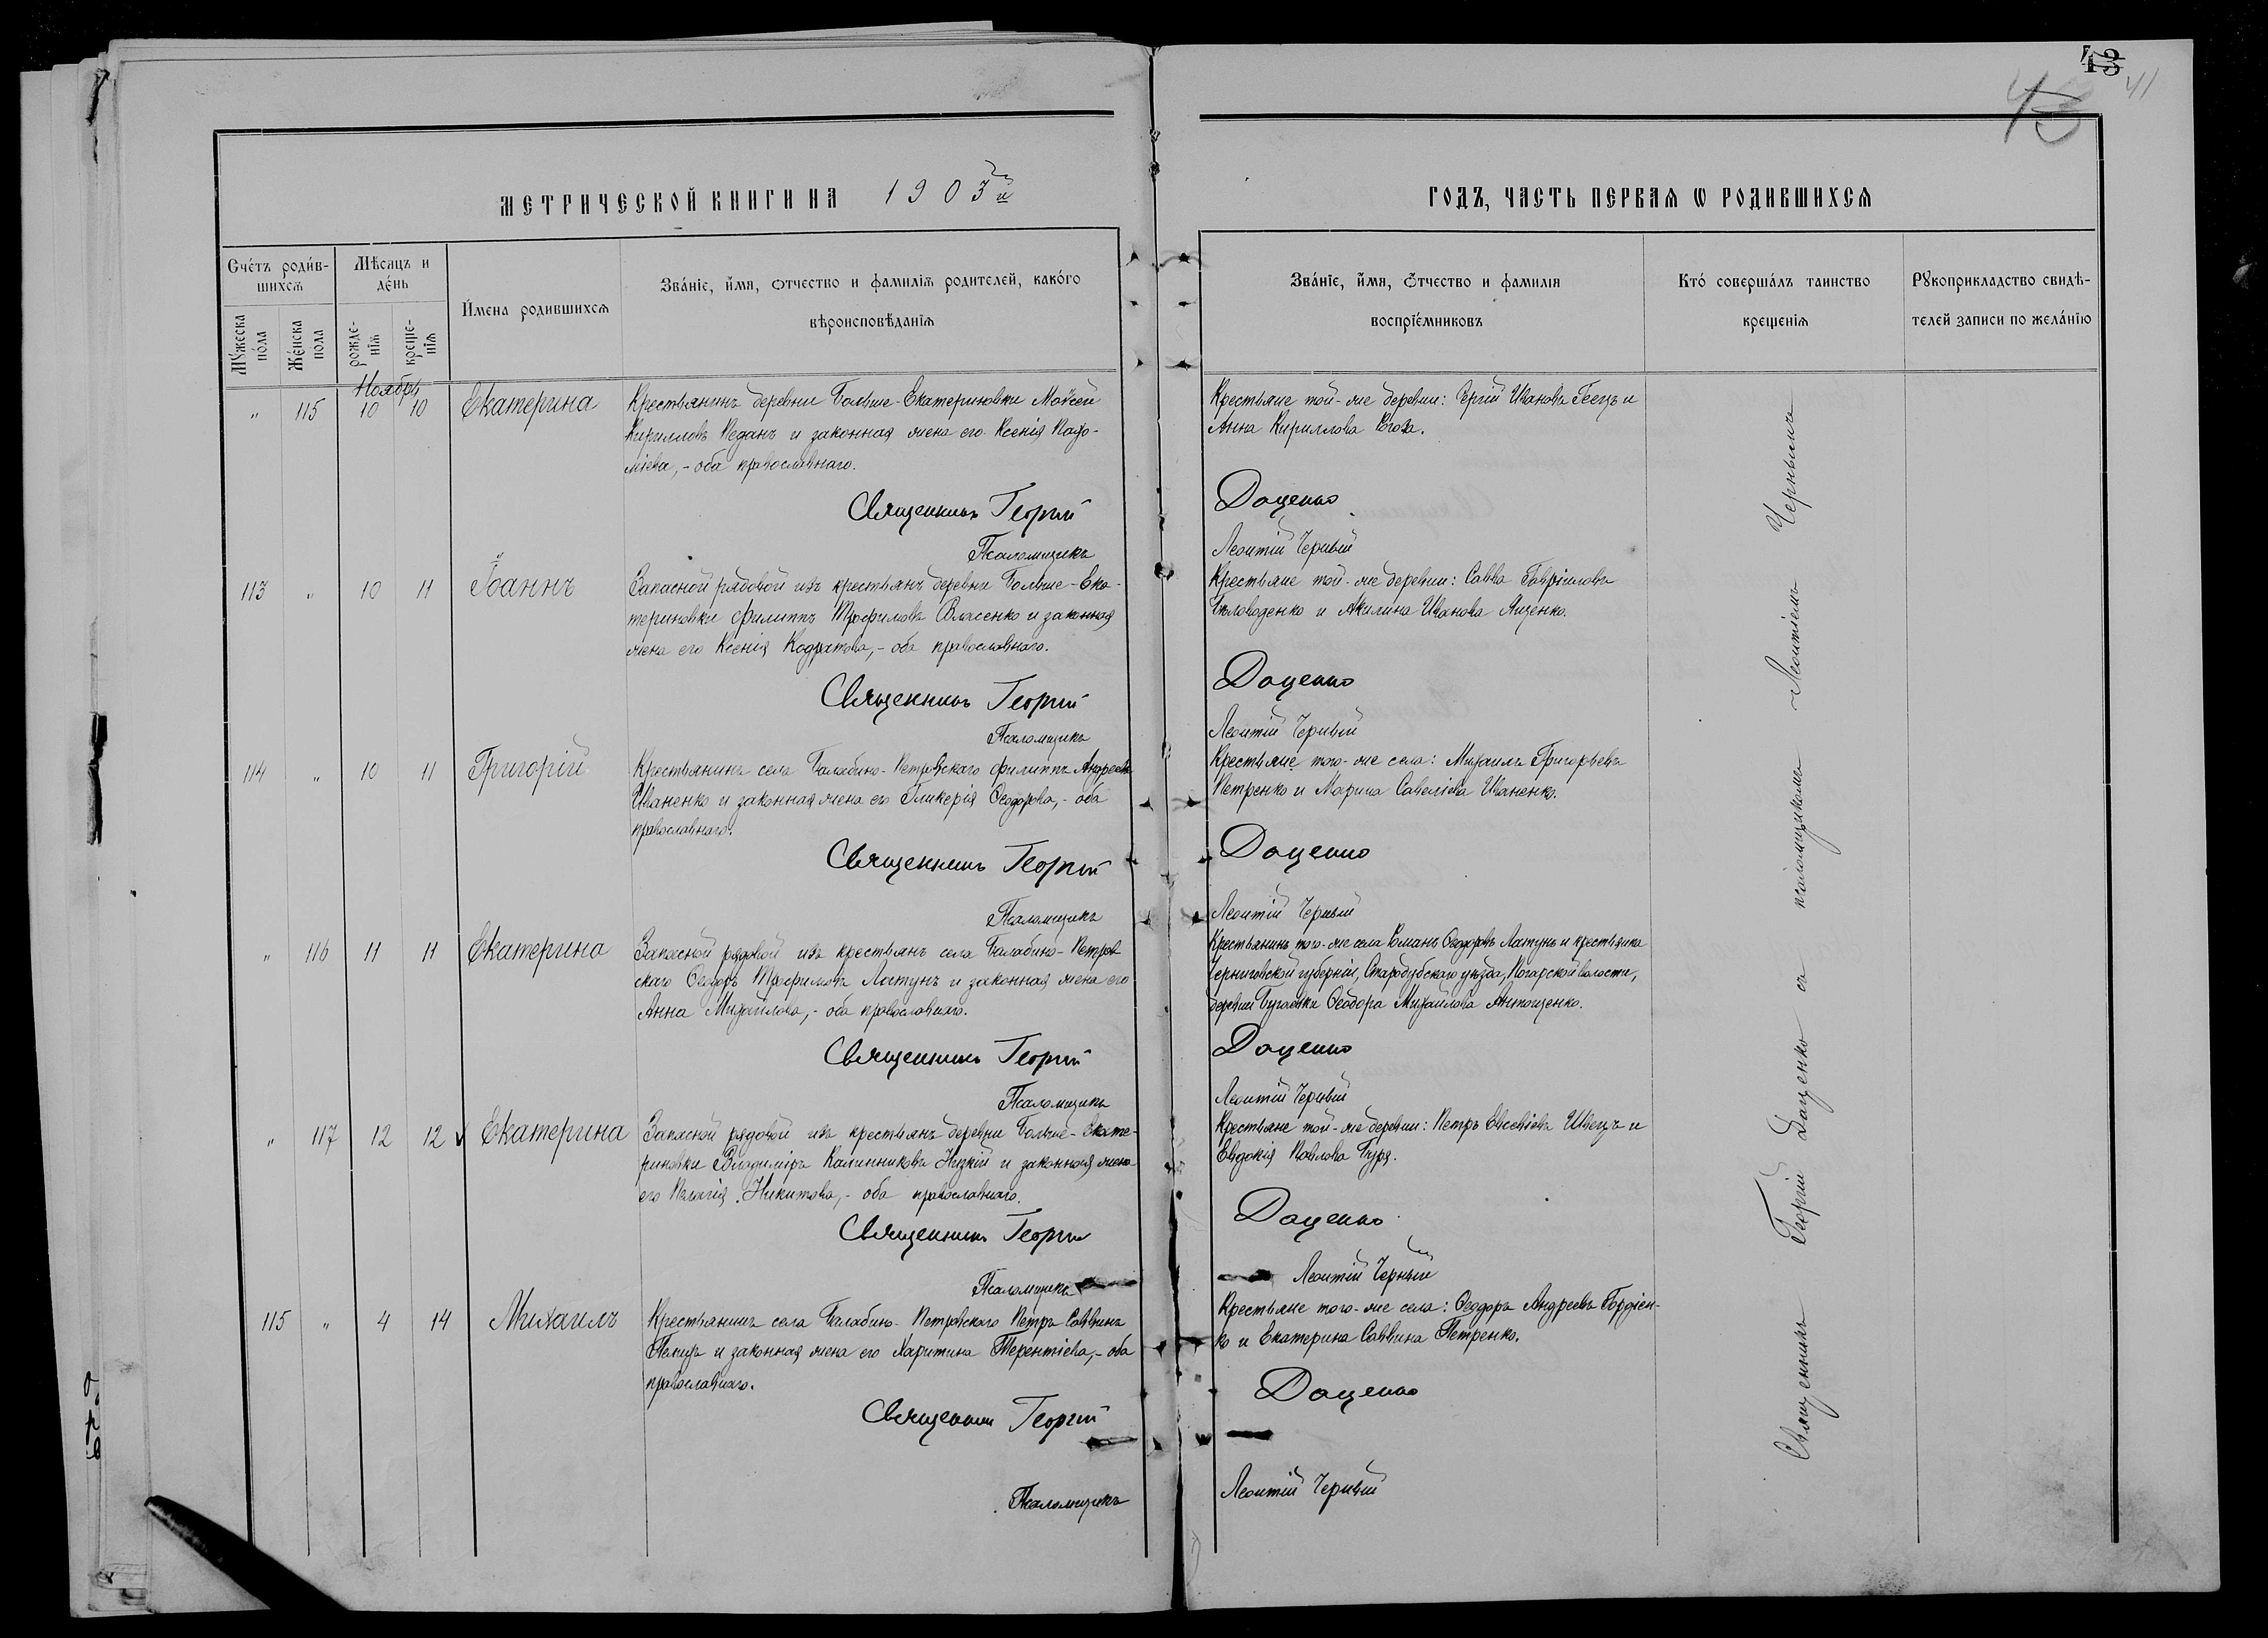 43
43 41
МЕТРИЧЕСКОЙ КНИГИ НА 1903й
ГОДЪ, ЧАСТЬ ПЕРВАЯ Ѡ РОДИВШИХСЯ
Счетъ родив-
шихся
Мужеска
пола
Женска
пола
Мѣсяцъ и
день
рожде-
нія
креще-
нія
Имена родившихся
Званіе, имя, отчество и фамилія родителей, какого
вѣроисповѣданія
Званіе, имя, отчество и фамилія
воспріемниковъ
Кто совершалъ таинство
крещенія
Рукоприкладство свидѣ-
телей записи по желанію
Ноябрь
" 115 10 10 Екатерина
Крестьянинъ деревни Больше-Екатериновки Моѵсей
Кирилловъ Педанъ и законная жена его Ксенія Пахо-
міева, - оба православнаго.
Священникъ Георгій
Псаломщикъ
Крестьяне той-же деревни: Сергій Ивановъ Геецъ и
Анна Кириллова Рогоза.
Доценко
Леонтій Черный
113 " 10 11 Іоаннъ
Запасной рядовой изъ крестьянъ деревни Больше-Ека-
териновки Филиппъ Трофимовъ Власенко и законная
жена его Ксенія Кодратова, - оба православнаго.
Священникъ Георгій
Псаломщикъ
Крестьяне той-же деревни: Савва Гавріиловъ
и Акилина Иванова Яценко.
Доценко
Леонтій Черный
114 " 10 11 Григорій
Крестьянинъ села Балабино-Петровскаго Филиппъ Андреевъ
Иваненко и законная жена его Гликерія Ѳеодорова, - оба
православнаго.
Священникъ Георгій
Псаломщикъ
Крестьяне того-же села: Михаилъ Григорьевъ
Петренко и Марина Савеліева Иваненко.
Доценко
Леонтій Черный
" 116 11 11 Екатерина
Запасной рядовой изъ крестьянъ села Балабино-Петров-
скаго Ѳеодоръ Трофимовъ Латунъ и законная жена его
Анна Михайлова, - оба православнаго.
Священникъ Георгій
Псаломщикъ
Крестьянинъ того-же села Романъ Ѳеодоровъ Латунъ и крестьянка
Черниговской губерніи, Стародубскаго уѣзда, Погарской волости,
деревни Ѳеодора Михайлова Антощенко.
Доценко
Леонтій Черный
" 117 12 12 Екатерина
Запасной рядовой изъ крестьянъ деревни Больше-Екате-
риновки Владиміръ Калинниковъ Низкій и законная жена
его Пелагія Никитова, - оба православнаго.
Священникъ Георгій
Псаломщикъ
Крестьяне той-же деревни: Петръ Евсевіевъ Швецъ и
Евдокія Павлова Буря.
Доценко
Леонтій Черный
115 " 4 14 Михаилъ
Крестьянинъ села Балабино-Петровскаго Петръ Саввинъ
и законная жена его Харитина Терентіева, - оба
православнаго.
Священникъ Георгій
Псаломщикъ
Крестьяне того-же села: Ѳеодоръ Андреевъ Гордіен-
ко и Екатерина Саввина Петренко.
Доценко
Леонтій Черный
Священникъ Георгій Доценко съ псаломщикомъ Леонтіемъ Чернымъ